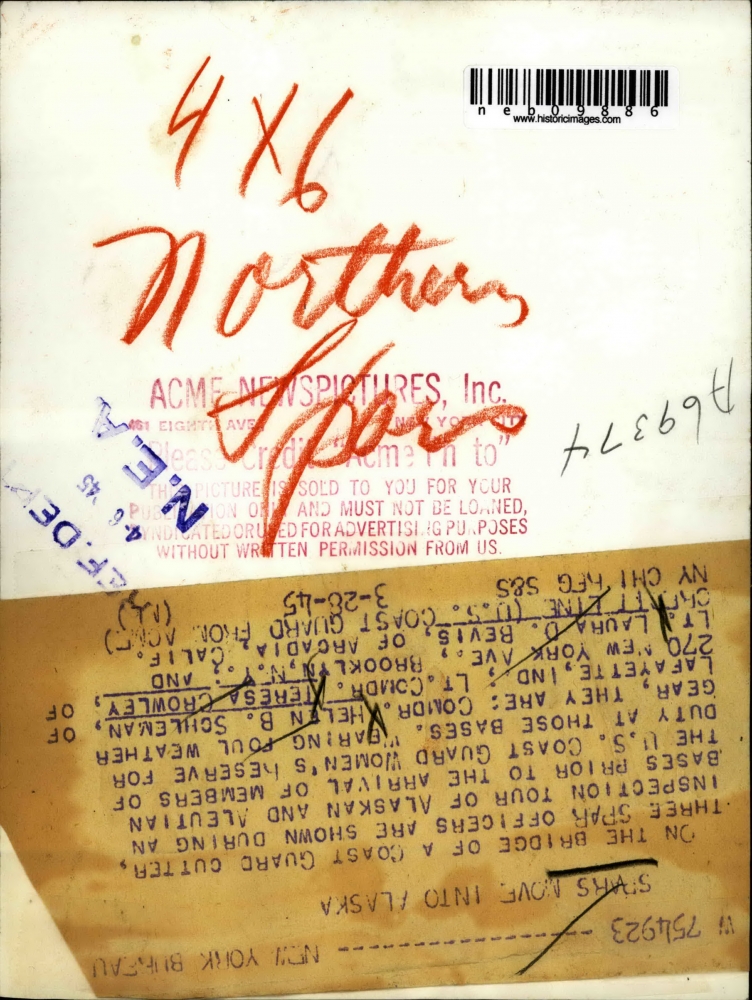 neb09886
www.historicimages.com
4 X 6
Northern
Spars
ACME NEWSPICTURES, Inc.
461 EIGHTH AVE NEW YO
Please Credit "Acme Ph to"
THIS PICTURE IS SOLD TO YOU FOR YOUR
PUB ION ONLY AND MUST NOT BE LOANED,
SYNDICATED OR USED FOR ADVERTISING PURPOSES
WITHOUT WRITTEN PERMISSION FROM US.
A69374
N.E.A
6 '45
REF. DEPT
W 754923 ---------------- NEW YORK BUREAU
SPARS MOVE INTO ALASKA
ON THE BRIDGE OF A COAST GUARD CUTTER,
THREE SPAR OFFICERS ARE SHOWN DURING AN
INSPECTION TOUR OF ALASKAN AND ALEUTIAN
BASES PRIOR TO THE ARRIVAL OF MEMBERS OF
THE U.S. COAST GUARD WOMEN'S RESERVE FOR
DUTY AT THOSE BASES. WEARING FOUL WEATHER
GEAR, THEY ARE: COMDR. HELEN B. SCHLEMAN, OF
LAFAYETTE, IND.; LT. COMDR. TERESA CROWLEY, OF
270 NEW YORK AVE., BROOKLYN, N.Y., AND
LT. LAURA D. BEVIS, OF ARCADIA, CALIF.
CREDIT LINE (U.S. COAST GUARD FROM ACME)
3-28-45
NY CHI HFG S&S